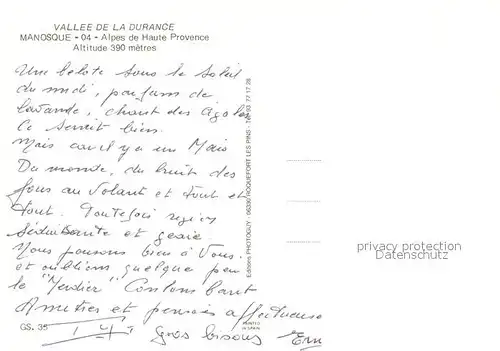 VALLEE DE LA DURANCE
MANOSQUE - 04 - Alpes de Haute Provence
Altitude 390 mètres
Une belote sous le soleil
du midi, parfum de
lavande, chant des cigales
Ce serait bien
Mais car il y a un Mais
Du monde, du bruit des
fous au volant et tout et
tout. Toutefois région
séduisante et
Nous pensons bien à Vous
et oublions quelque peu
le "Merdier"
Amitiés et pensées affectueuses
Gros bisous
GS. 35
PRINTED
IN SPAIN
Editions PHOTOGUY - 06330 ROQUEFORT LES PINS - Tél 93 77 17 28
privacy protection
Datenschutz